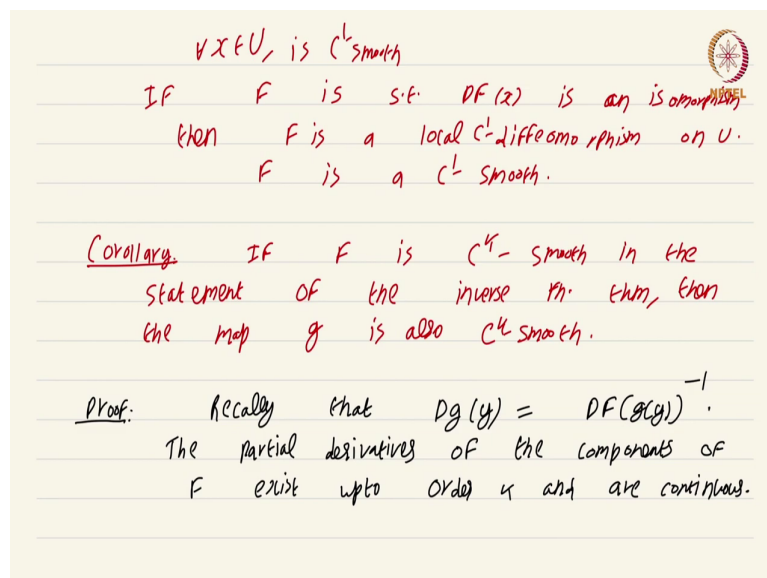 ∀ x ∈ U, is C¹ smooth
IF F is s.t. DF(x) is an isomorphism
then F is a local C¹-diffeomorphism on U.
F is a C¹- smooth.
Corollary. IF F is Cᵏ- smooth in the
statement of the inverse fn. thm, then
the map g is also Cᵏ smooth.
Proof: Recally that Dg(y) = DF(g(y))⁻¹.
The partial derivatives of the components of
F exist upto order k and are continuous.
NPTEL